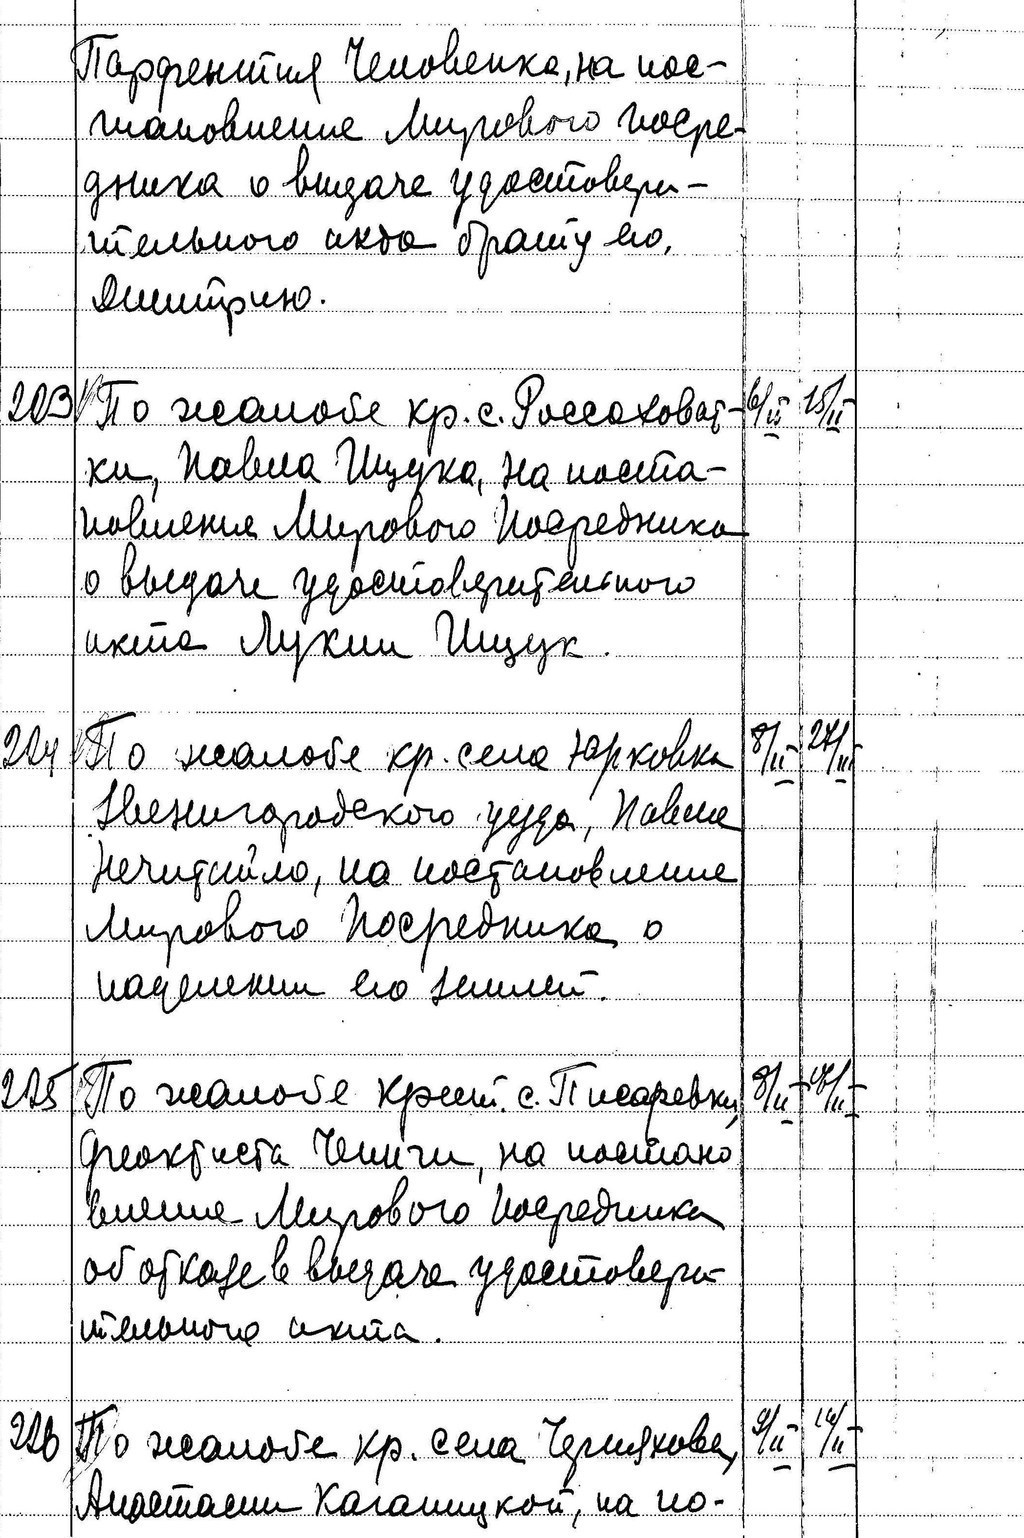 Парфентия Человенка, на пос-
тановление Мирового посре-
дника о выдаче удостовери-
тельного акта брату его,
Дмитрию.
203 По жалобе кр. с. Россоховат- 6/II 15/II
ки, Павла Ищука, на поста-
новление Мирового Посредника
о выдаче удостоверительного
акта Лукии Ищук.
204 По жалобе кр. села Юрковки 8/II 27/II
Звенигородского уезда, Павла
Нечитайло, на постановление
Мирового Посредника о
наделении его землей.
205 По жалобе крест. с. Писаревки, 8/II /II
Феоктиста Чепиги, на постано
вление Мирового Посредника
об отказе в выдаче удостовери-
тельного акта.
206 По жалобе кр. села 9/II /II
Анастасии Каганицкой, на по-